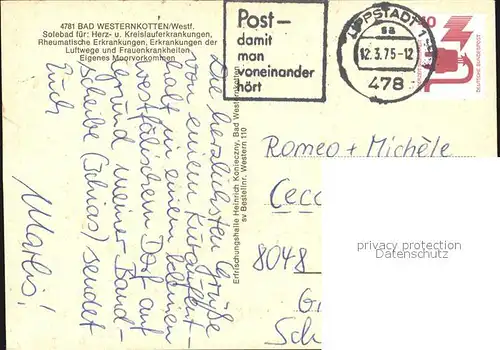 4781 BAD WESTERNKOTTEN/Westf.
Solebad für: Herz- u. Kreislauferkrankungen,
Rheumatische Erkrankungen, Erkrankungen der
Luftwege und Frauenkrankheiten
Eigenes Moorvorkommen
Post –
damit
man
voneinander
hört
LIPPSTADT 1
sa
12.3.75-12
478
DEUTSCHE BUNDESPOST
Die herzlichsten Grüße
von einem Kuraufent-
halt in einem kleinen
westfälischem Dorf auf
Grund meiner Band-
scheibe (Ischias) sendet
Euch
Marlis!
Erfrischungshalle Heinrich Konieczny, Bad Westernkotten
sv Bestellnr. Western 110
Romeo + Michèle
Cecc
8048
G
Sch
privacy protection
Datenschutz